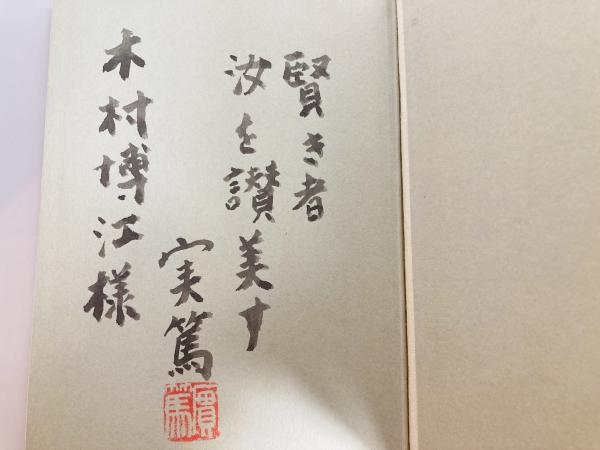 賢き者
汝を讃美す
実篤
實篤
木村博江様